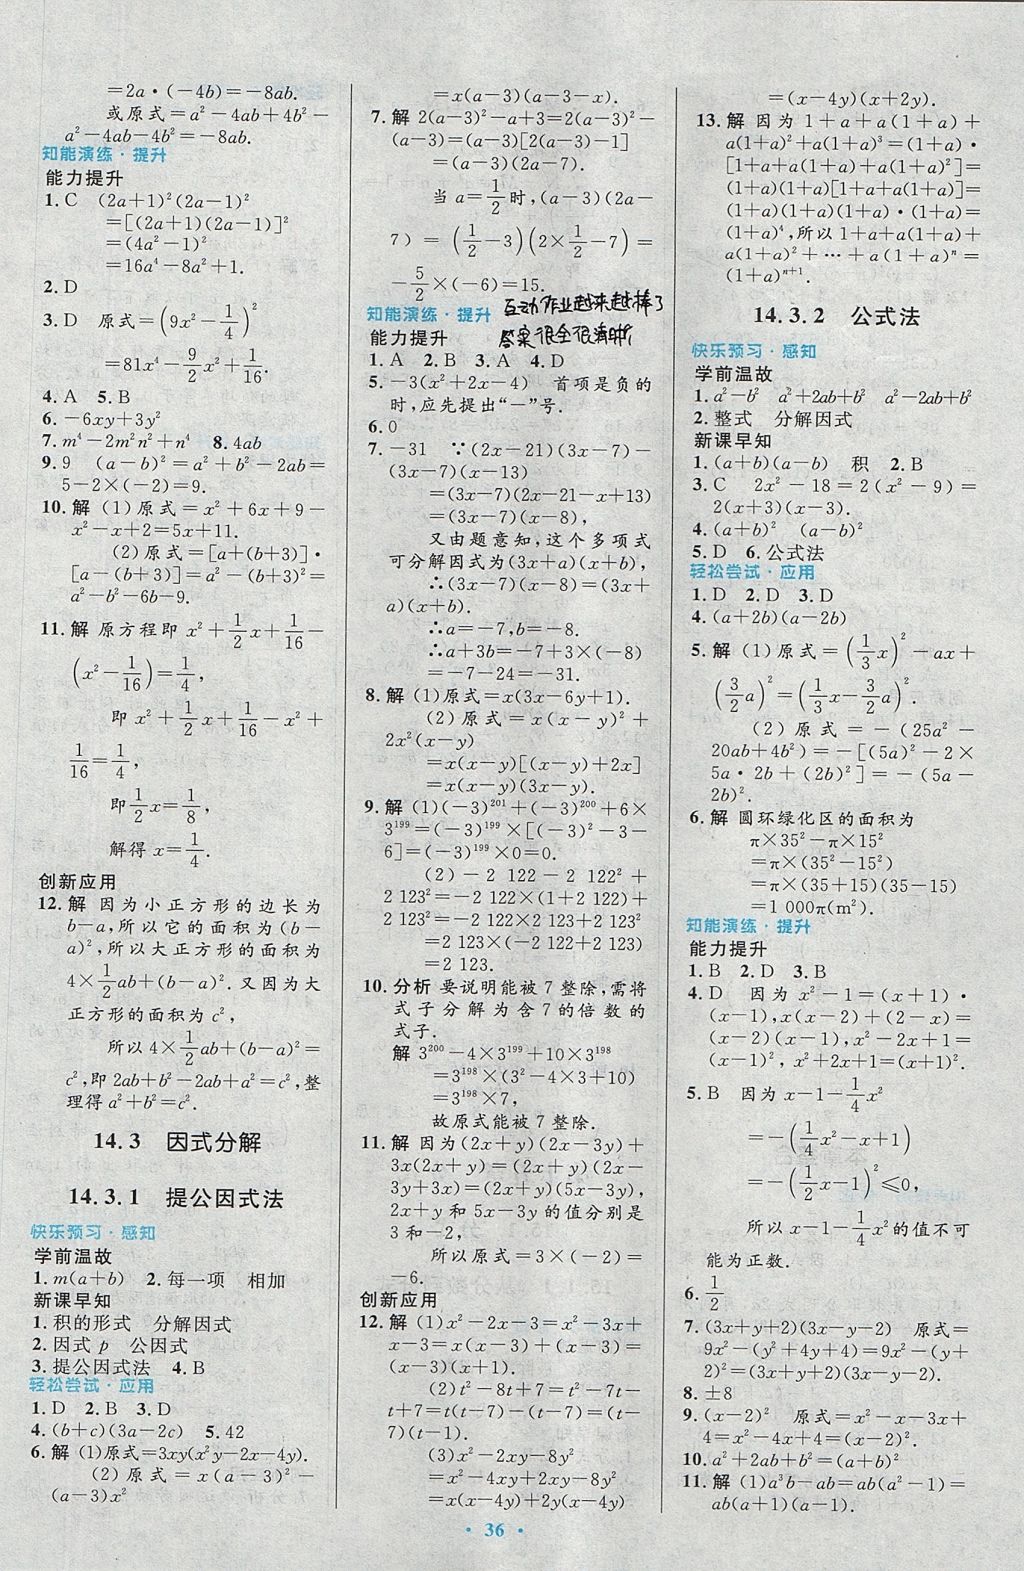 =2a·(-4b)=-8ab.
或原式=a²-4ab+4b²-
a²-4ab-4b²=-8ab.
知能演练·提升
能力提升
1. C (2a+1)²(2a-1)²
=[(2a+1)(2a-1)]²
=(4a²-1)²
=16a⁴-8a²+1.
2. D
3. D 原式=(9x²-1/4)²
=81x⁴-9/2x²+1/16.
4. A 5. B
6. -6xy+3y²
7. m⁴-2m²n²+n⁴ 8. 4ab
9. 9 (a-b)²=a²+b²-2ab=
5-2×(-2)=9.
10. 解 (1)原式=x²+6x+9-
x²-x+2=5x+11.
(2)原式=[a+(b+3)]·
[a-(b+3)]=a²-(b+3)²=
a²-b²-6b-9.
11. 解 原方程即 x²+1/2x+1/16-
(x²-1/16)=1/4,
即 x²+1/2x+1/16-x²+
1/16=1/4,
即1/2x=1/8,
解得 x=1/4.
创新应用
12. 解 因为小正方形的边长为
b-a,所以它的面积为(b-
a)²,所以大正方形的面积为
4×1/2ab+(b-a)².又因为大
正方形的面积为c²,
所以 4×1/2ab+(b-a)²=
c²,即2ab+b²-2ab+a²=c²,整
理得a²+b²=c².
14.3 因式分解
14.3.1 提公因式法
快乐预习·感知
学前温故
1. m(a+b) 2. 每一项 相加
新课早知
1. 积的形式 分解因式
2. 因式 p 公因式
3. 提公因式法 4. B
轻松尝试·应用
1. D 2. B 3. D
4. (b+c)(3a-2c) 5. 42
6. 解 (1)原式=3xy(x²y-2x-4y).
(2)原式=x(a-3)²-
(a-3)x²
=x(a-3)(a-3-x).
7. 解 2(a-3)²-a+3=2(a-3)²-
(a-3)=(a-3)[2(a-3)-1]
=(a-3)(2a-7).
当a=1/2时,(a-3)(2a-
7)=(1/2-3)(2×1/2-7)=
-5/2×(-6)=15.
知能演练·提升 互动作业越来越棒了
能力提升 答案很全很清晰
1. A 2. B 3. A 4. D
5. -3(x²+2x-4) 首项是负的
时,应先提出“—”号.
6. 0
7. -31 ∵(2x-21)(3x-7)-
(3x-7)(x-13)
=(3x-7)(2x-21-x+13)
=(3x-7)(x-8),
又由题意知,这个多项式
可分解因式为(3x+a)(x+b),
∴(3x-7)(x-8)=(3x+
a)(x+b).
∴a=-7,b=-8.
∴a+3b=-7+3×(-8)
=-7-24=-31.
8. 解 (1)原式=x(3x-6y+1).
(2)原式=x(x-y)²+
2x²(x-y)
=x(x-y)[(x-y)+2x]
=x(x-y)(3x-y).
9. 解 (1)(-3)²⁰¹+(-3)²⁰⁰+6×
3¹⁹⁹=(-3)¹⁹⁹×[(-3)²-3-
6]=(-3)¹⁹⁹×0=0.
(2)-2 122-2 122²+
2 123²=-2 122×(1+2 122)+
2 123²=-2 122×2 123+2 123²
=2 123×(-2 122+2 123)
=2 123.
10. 分析 要说明能被7整除,需将
式子分解为含7的倍数的
式子.
解 3²⁰⁰-4×3¹⁹⁹+10×3¹⁹⁸
=3¹⁹⁸×(3²-4×3+10)
=3¹⁹⁸×7,
故原式能被7整除.
11. 解 因为(2x+y)(2x-3y)+
3x(2x+y)=(2x+y)(2x-
3y+3x)=(2x+y)(5x-3y),
2x+y和5x-3y的值分别是
3和-2,
所以原式=3×(-2)=
-6.
创新应用
12. 解 (1)x²-2x-3=x²-3x+
x-3=x(x-3)+(x-3)=
(x-3)(x+1).
(2)t²-8t+7=t²-7t-
t+7=t(t-7)-(t-7)=(t-
7)(t-1).
(3)x²-2xy-8y²
=x²-4xy+2xy-8y²
=x(x-4y)+2y(x-4y)
=(x-4y)(x+2y).
13. 解 因为 1+a+a(1+a)+
a(1+a)²+a(1+a)³=(1+a)·
[1+a+a(1+a)+a(1+a)²]=
(1+a)(1+a)[1+a+a(1+a)]=
(1+a)(1+a)(1+a)·(1+a)=
(1+a)⁴,所以 1+a+a(1+a)+
a(1+a)²+…+a(1+a)ⁿ=
(1+a)ⁿ⁺¹.
14.3.2 公式法
快乐预习·感知
学前温故
1. a²-b² a²+2ab+b² a²-2ab+b²
2. 整式 分解因式
新课早知
1. (a+b)(a-b) 积 2. B
3. C 2x²-18=2(x²-9)=
2(x+3)(x-3).
4. (a+b)² (a-b)²
5. D 6. 公式法
轻松尝试·应用
1. D 2. D 3. D
4. (a+2b)(a-2b)
5. 解 (1)原式=(1/3x)²-ax+
(3/2a)²=(1/3x-3/2a)².
(2)原式=-(25a²-
20ab+4b²)=-[(5a)²-2×
5a·2b+(2b)²]=-(5a-
2b)².
6. 解 圆环绿化区的面积为
π×35²-π×15²
=π×(35²-15²)
=π×(35+15)(35-15)
=1 000π(m²).
知能演练·提升
能力提升
1. B 2. D 3. B
4. D 因为 x²-1=(x+1)·
(x-1),x(x-2)+(2-x)=
(x-2)(x-1),x²-2x+1=
(x-1)²,x²+2x+1=(x+1)².
5. B 因为 x-1-1/4x²
=-(1/4x²-x+1)
=-(1/2x-1)²≤0,
所以 x-1-1/4x²的值不可
能为正数.
6. 1/2
7. (3x+y+2)(3x-y-2) 原式=
9x²-(y²+4y+4)=9x²-(y+
2)²=(3x+y+2)(3x-y-2).
8. ±8
9. (x-2)² 原式=x²-x-3x+
4=x²-4x+4=(x-2)².
10. a²+2ab+b²=(a+b)²
11. 解 (1)a³b-ab=ab(a²-1)=
ab(a+1)(a-1).
• 36 •